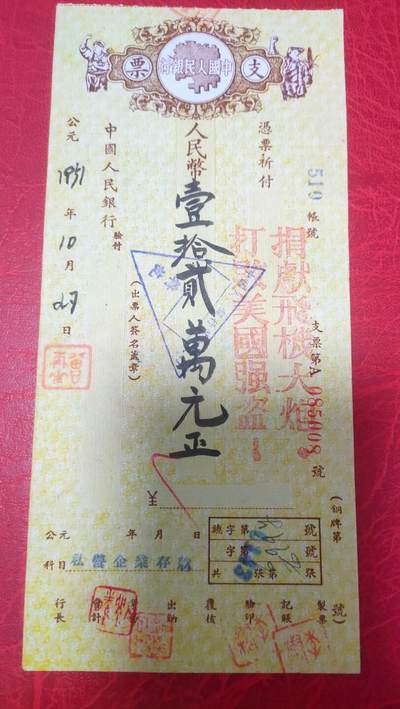 支票
中國人民銀行
憑票祈付
人民幣壹拾貳萬元正
中國人民銀行
驗付
公元1951年10月27日
(出票人簽名蓋章)
510
帳號
支票第A 085008 號
捐獻飛機大炮
打敗美國强盜!
¥
(銅牌第 號)
公元 年 月 日
科目 私營企業存款
總字第 號
字第 號
共 張第 張
行長
會計
出納
覆核
驗印
記賬
製票